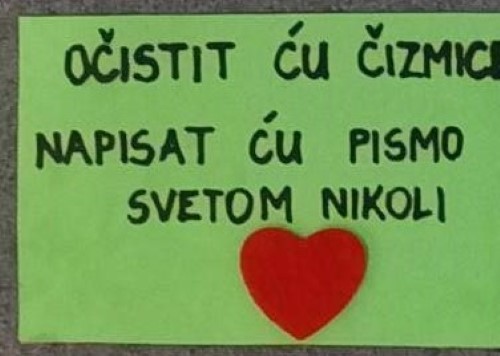 OČISTIT ĆU ČIZMICE
NAPISAT ĆU PISMO
SVETOM NIKOLI